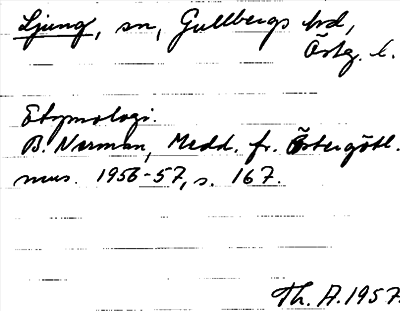 Ljung, sn, Gullbergs hd,
Östg. l.
Etymologi.
B. Norman, Medd. fr. Östergötl.
mus. 1956-57, s. 167.
Th. A. 1957.